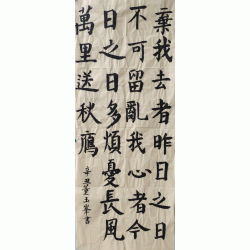 棄我去者昨日之日
不可留亂我心者今
日之日多煩憂長風
萬里送秋鴈
玉峯書